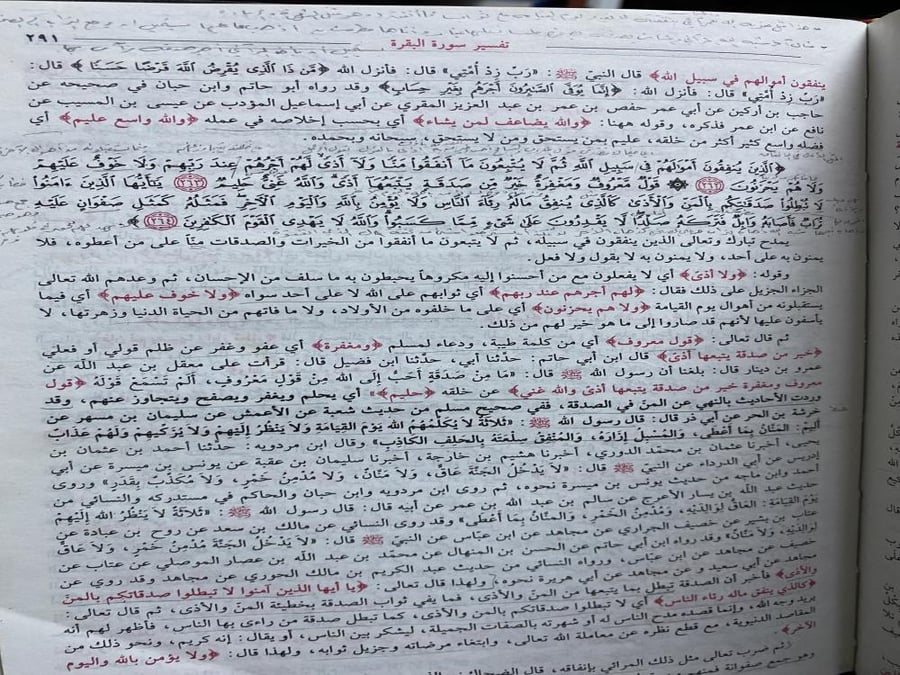 تفسير سورة البقرة
٢٩١
ينفقون أموالهم في سبيل الله﴾ قال النبي ﷺ: «رَبِّ زِدْ أُمَّتِي» قال: فأنزل الله ﴿مَّن ذَا الَّذِى يُقْرِضُ اللَّهَ قَرْضًا حَسَنًا﴾ قال:
«رَبِّ زِدْ أُمَّتِي» قال: فأنزل الله: ﴿إِنَّمَا يُوَفَّى الصَّـٰبِرُونَ أَجْرَهُم بِغَيْرِ حِسَابٍ﴾ وقد رواه أبو حاتم وابن حبان في صحيحه عن
حاجب بن أركين عن أبي عمر حفص بن عمر بن عبد العزيز المقري عن أبي إسماعيل المؤدب عن عيسى بن المسيب عن
نافع عن ابن عمر فذكره، وقوله ههنا: ﴿والله يضاعف لمن يشاء﴾ أي بحسب إخلاصه في عمله ﴿والله واسع عليم﴾ أي
فضله واسع كثير أكثر من خلقه، عليم بمن يستحق ومن لا يستحق، سبحانه وبحمده.
﴿الَّذِينَ يُنفِقُونَ أَمْوَٰلَهُمْ فِى سَبِيلِ اللَّهِ ثُمَّ لَا يُتْبِعُونَ مَآ أَنفَقُوا۟ مَنًّا وَلَآ أَذًى لَّهُمْ أَجْرُهُمْ عِندَ رَبِّهِمْ وَلَا خَوْفٌ عَلَيْهِمْ
وَلَا هُمْ يَحْزَنُونَ ﴿٢٦٢﴾ ۞ قَوْلٌ مَّعْرُوفٌ وَمَغْفِرَةٌ خَيْرٌ مِّن صَدَقَةٍ يَتْبَعُهَآ أَذًى وَاللَّهُ غَنِىٌّ حَلِيمٌ ﴿٢٦٣﴾ يَـٰٓأَيُّهَا الَّذِينَ ءَامَنُوا۟
لَا تُبْطِلُوا۟ صَدَقَـٰتِكُم بِالْمَنِّ وَالْأَذَىٰ كَالَّذِى يُنفِقُ مَالَهُۥ رِئَآءَ النَّاسِ وَلَا يُؤْمِنُ بِاللَّهِ وَالْيَوْمِ الْـَٔاخِرِ فَمَثَلُهُۥ كَمَثَلِ صَفْوَانٍ عَلَيْهِ
تُرَابٌ فَأَصَابَهُۥ وَابِلٌ فَتَرَكَهُۥ صَلْدًا لَّا يَقْدِرُونَ عَلَىٰ شَىْءٍ مِّمَّا كَسَبُوا۟ وَاللَّهُ لَا يَهْدِى الْقَوْمَ الْكَـٰفِرِينَ ﴿٢٦٤﴾﴾.
يمدح تبارك وتعالى الذين ينفقون في سبيله، ثم لا يتبعون ما أنفقوا من الخيرات والصدقات منّاً على من أعطوه، فلا
يمنون به على أحد، ولا يمنون به لا بقول ولا فعل.
وقوله: ﴿ولا أذى﴾ أي لا يفعلون مع من أحسنوا إليه مكروهاً يحبطون به ما سلف من الإحسان، ثم وعدهم الله تعالى
الجزاء الجزيل على ذلك فقال: ﴿لهم أجرهم عند ربهم﴾ أي ثوابهم على الله لا على أحد سواه ﴿ولا خوف عليهم﴾ أي فيما
يستقبلونه من أهوال يوم القيامة ﴿ولا هم يحزنون﴾ أي على ما خلفوه من الأولاد، ولا ما فاتهم من الحياة الدنيا وزهرتها، لا
يأسفون عليها لأنهم قد صاروا إلى ما هو خير لهم من ذلك.
ثم قال تعالى: ﴿قول معروف﴾ أي من كلمة طيبة، ودعاء لمسلم ﴿ومغفرة﴾ أي عفو وغفر عن ظلم قولي أو فعلي
﴿خير من صدقة يتبعها أذى﴾ قال ابن أبي حاتم: حدّثنا أبي، حدّثنا ابن فضيل قال: قرأت على معقل بن عبد الله عن
عمرو بن دينار قال: بلغنا أن رسول الله ﷺ قال: «مَا مِنْ صَدَقَةٍ أَحَبُّ إِلَى اللهِ مِنْ قَوْلٍ مَعْرُوفٍ، أَلَمْ تَسْمَعْ قَوْلَهُ ﴿قول
معروف ومغفرة خير من صدقة يتبعها أذى والله غني﴾ عن خلقه ﴿حليم﴾» أي يحلم ويغفر ويصفح ويتجاوز عنهم، وقد
وردت الأحاديث بالنهي عن المنّ في الصدقة، ففي صحيح مسلم من حديث شعبة عن الأعمش عن سليمان بن مسهر عن
خرشة بن الحر عن أبي ذر قال: قال رسول الله ﷺ: «ثَلاَثَةٌ لاَ يُكَلِّمُهُمُ اللهُ يَوْمَ القِيَامَةِ وَلاَ يَنْظُرُ إِلَيْهِمْ وَلاَ يُزَكِّيهِمْ وَلَهُمْ عَذَابٌ
أَلِيمٌ: المَنَّانُ بِمَا أَعْطَى، وَالمُسْبِلُ إِزَارَهُ، وَالمُنَفِّقُ سِلْعَتَهُ بِالحَلِفِ الكَاذِبِ» وقال ابن مردويه: حدّثنا أحمد بن عثمان بن
يحيى، أخبرنا عثمان بن محمّد الدوري، أخبرنا هشيم بن خارجة، أخبرنا سليمان بن عقبة عن يونس بن ميسرة عن أبي
إدريس عن أبي الدرداء عن النبي ﷺ قال: «لاَ يَدْخُلُ الجَنَّةَ عَاقٌّ، وَلاَ مَنَّانٌ، وَلاَ مُدْمِنُ خَمْرٍ، وَلاَ مُكَذِّبٌ بِقَدَرٍ» وروى
أحمد وابن ماجه من حديث يونس بن ميسرة نحوه، ثم روى ابن مردويه وابن حبان والحاكم في مستدركه والنسائي من
حديث عبد الله بن يسار الأعرج عن سالم بن عبد الله بن عمر عن أبيه قال: قال رسول الله ﷺ: «ثَلاَثَةٌ لاَ يَنْظُرُ اللهُ إِلَيْهِمْ
يَوْمَ القِيَامَةِ: العَاقُّ لِوَالِدَيْهِ، وَمُدْمِنُ الخَمْرِ، وَالمَنَّانُ بِمَا أَعْطَى» وقد روى النسائي عن مالك بن سعد عن روح بن عبادة عن
عتاب بن بشير عن خصيف الجزاري عن مجاهد عن ابن عبّاس عن النبي ﷺ قال: «لاَ يَدْخُلُ الجَنَّةَ مُدْمِنُ خَمْرٍ، وَلاَ عَاقٌّ
لِوَالِدَيْهِ، وَلاَ مَنَّانٌ» وقد رواه ابن أبي حاتم عن الحسن بن المنهال عن محمّد بن عبد الله بن عصار الموصلي عن عتاب عن
خصيف عن مجاهد عن ابن عبّاس، ورواه النسائي من حديث عبد الكريم بن مالك الحوري عن مجاهد وقد روي عن
مجاهد عن أبي سعيد و عن مجاهد عن أبي هريرة نحوه، ولهذا قال تعالى: ﴿يا أيها الذين آمنوا لا تبطلوا صدقاتكم بالمنّ
والأذى﴾ فأخبر أن الصدقة تبطل بما يتبعها من المنّ والأذى، فما يفي ثواب الصدقة بخطيئة المنّ والأذى، ثم قال تعالى:
﴿كالذي ينفق ماله رئاء الناس﴾ أي لا تبطلوا صدقاتكم بالمن والأذى، كما تبطل صدقة من راءى بها الناس، فأظهر لهم أنه
يريد وجه الله، وإنما قصده مدح الناس له أو شهرته بالصفات الجميلة، ليشكر بين الناس، أو يقال: إنه كريم، ونحو ذلك من
المقاصد الدنيوية، مع قطع نظره عن معاملة الله تعالى، وابتغاء مرضاته وجزيل ثوابه، ولهذا قال: ﴿ولا يؤمن بالله واليوم
الآخر﴾.
ثم ضرب تعالى مثل ذلك المرائي بإنفاقه، قال الضحاك:
وهو جمع صفوانة فمنهم